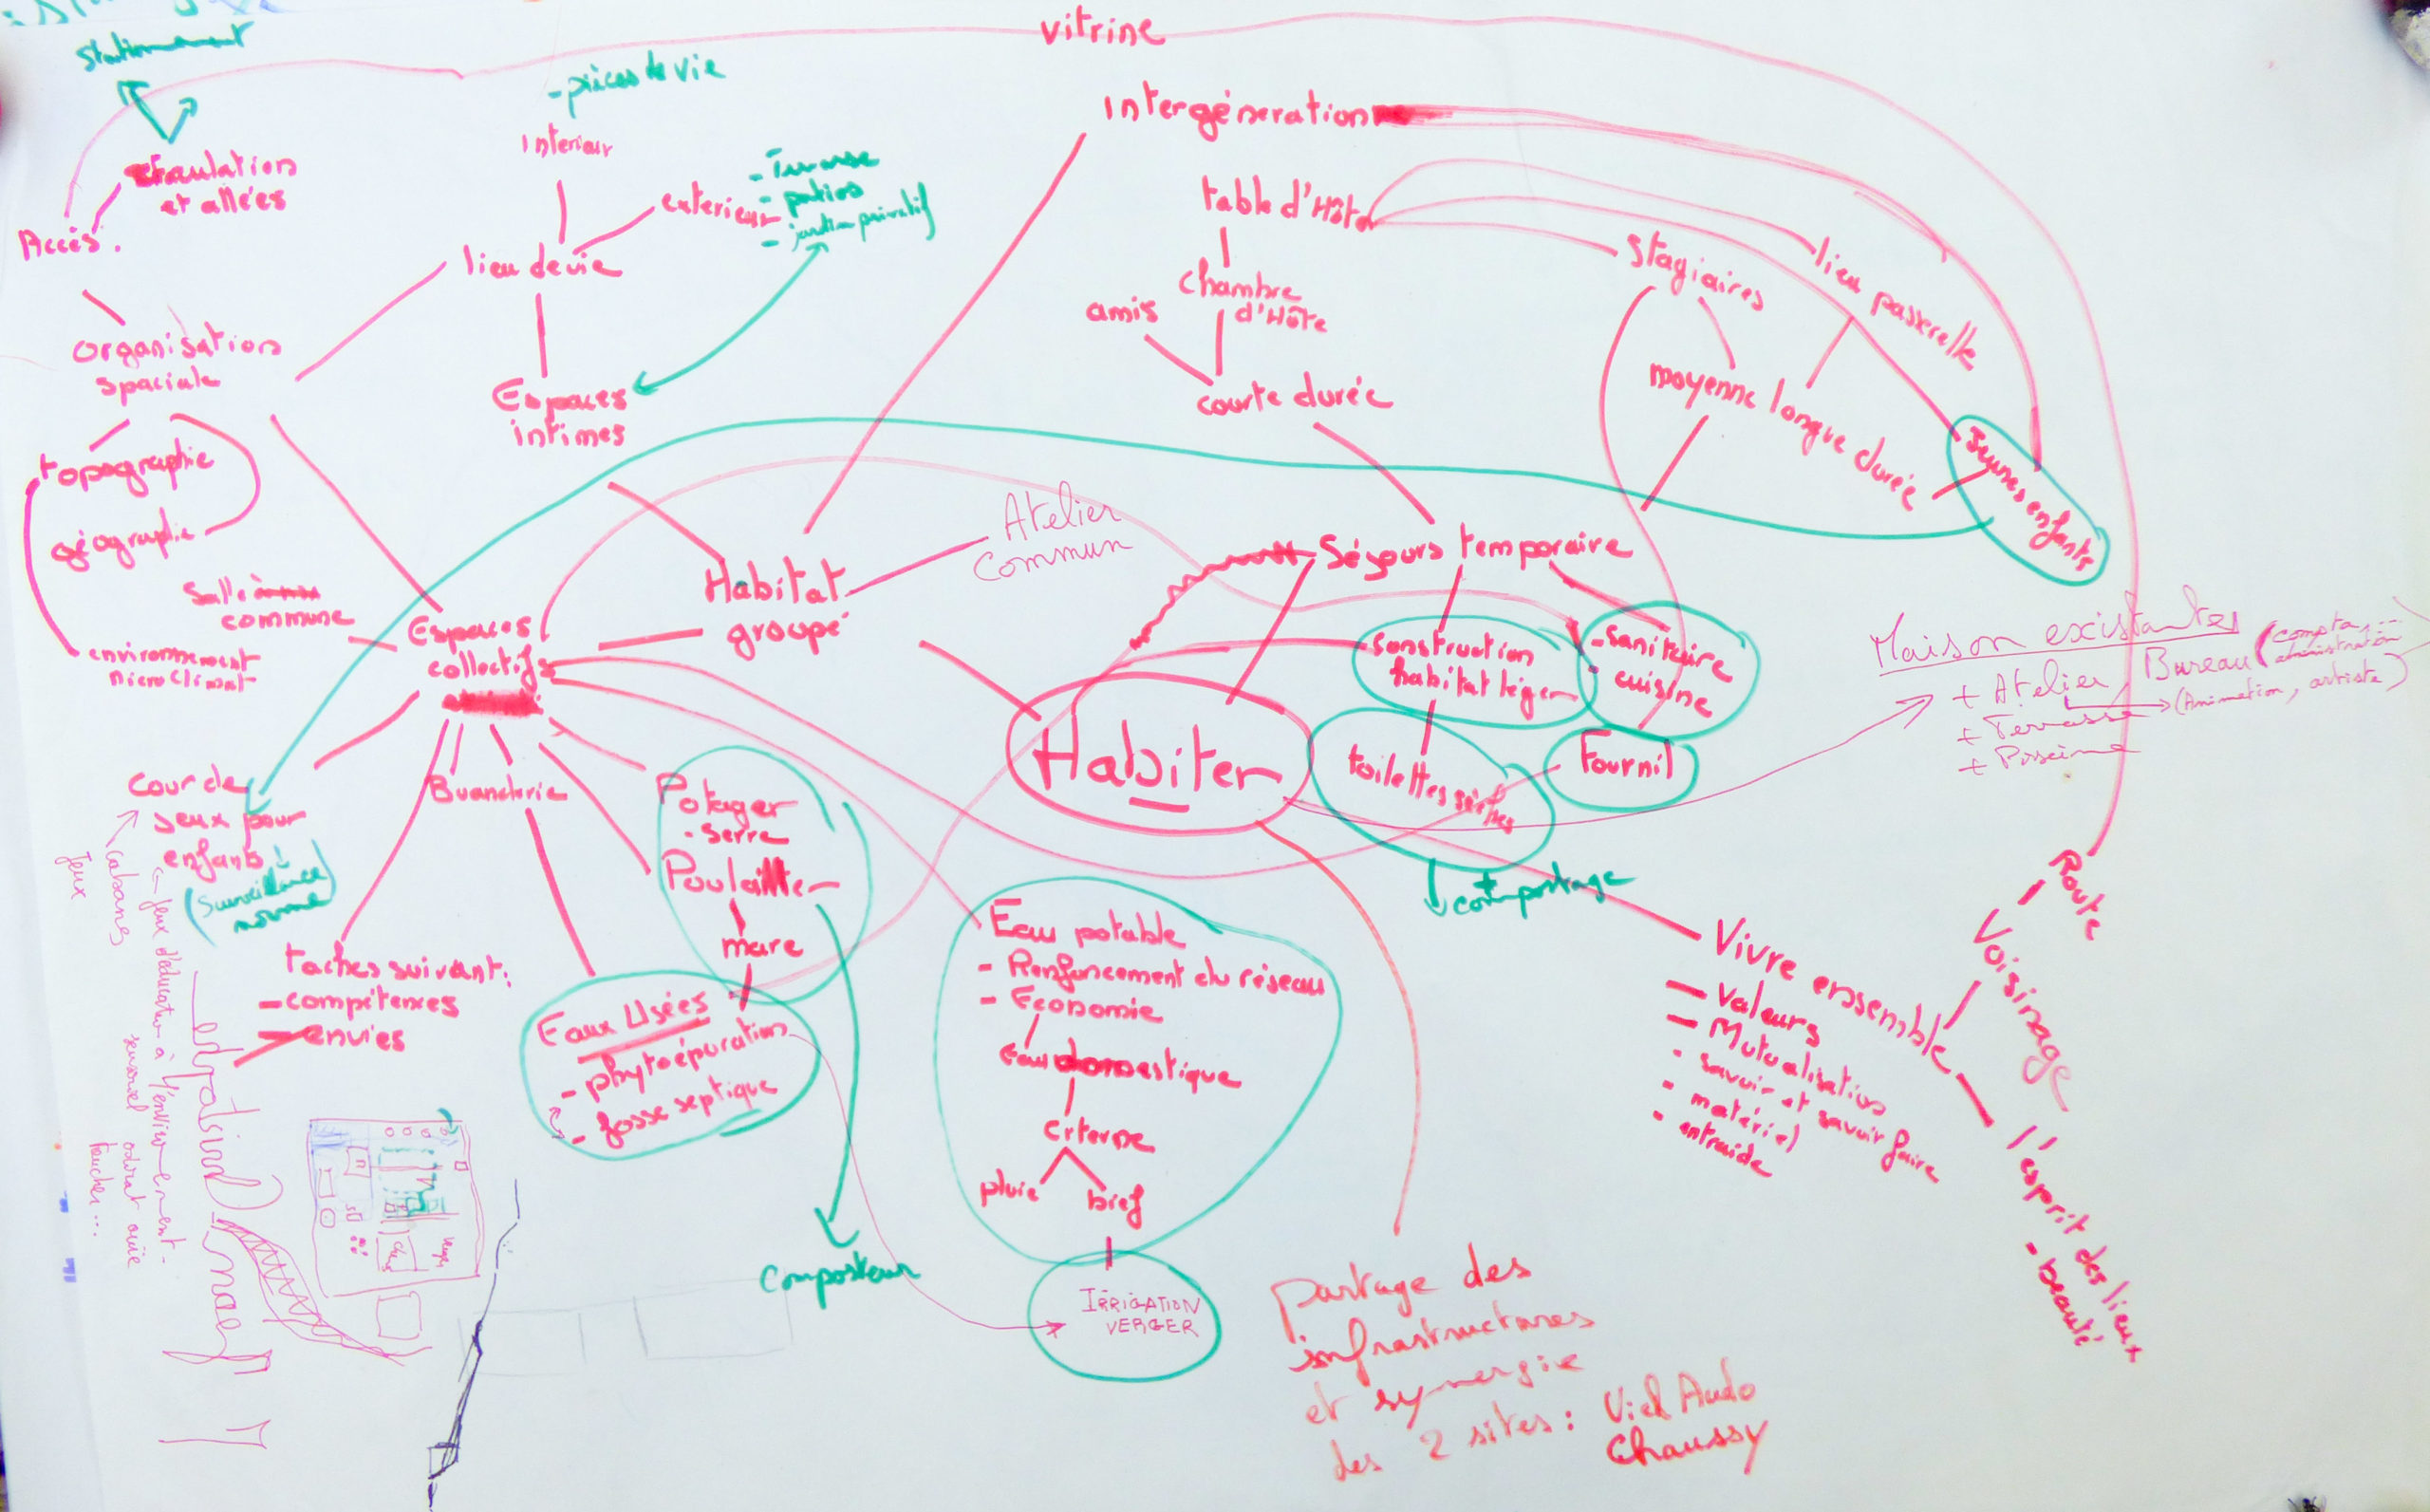 Stationnement
vitrine
- pièces de vie
Interieur
Intergéneration
circulation
et allées
Accès.
exterieur
- Terasse
- patios
- jardin privatif
lieu de vie
table d'Hôte
Chambre
d'Hôte
amis
courte durée
Stagiaires
lieu passerelle
moyenne longue durée
Jeunes enfants
organisation
spaciale
Espaces
intimes
topographie
géographie
environnement
microclimat
Salle
commune
Espaces
collectifs
Habitat
groupé
Atelier
Commun
Séjours temporaire
construction
habitat léger
- sanitaire
- cuisine
toilettes sèches
Fournil
compostage
Maison existantes
+ Atelier
Bureau (compta...
administration
(Animation, artiste)
+ Terrasse
+ Piscine
Habiter
Cour de
jeux pour
enfants
(Surveillance
cabane
Jeux
Jeux d'éducation à l'environnement
sensoriel odorat ouïe
toucher...
Buanderie
Potager
- serre
Poulailler
mare
taches suivant:
- compétences
- envies
Eaux Usées
- phytoépuration
- fosse septique
Composteur
Eau potable
- Renforcement du réseau
- Economie
Eau domestique
citerne
pluie
bief
IRRIGATION
VERGER
Route
Voisinage
Vivre ensemble
- Valeurs
- Mutualisation
- savoir et savoir faire
- matériel
- entraide
l'esprit des lieux
- beauté
partage des
infrastructures
et synergie
des 2 sites : Viel Audo
Chaussy